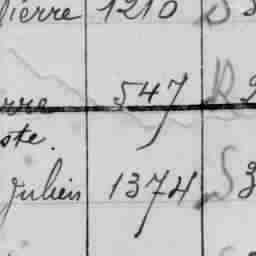 Pierre 1210 S
erre 547 R 2
ste.
Julien 1374 S 3